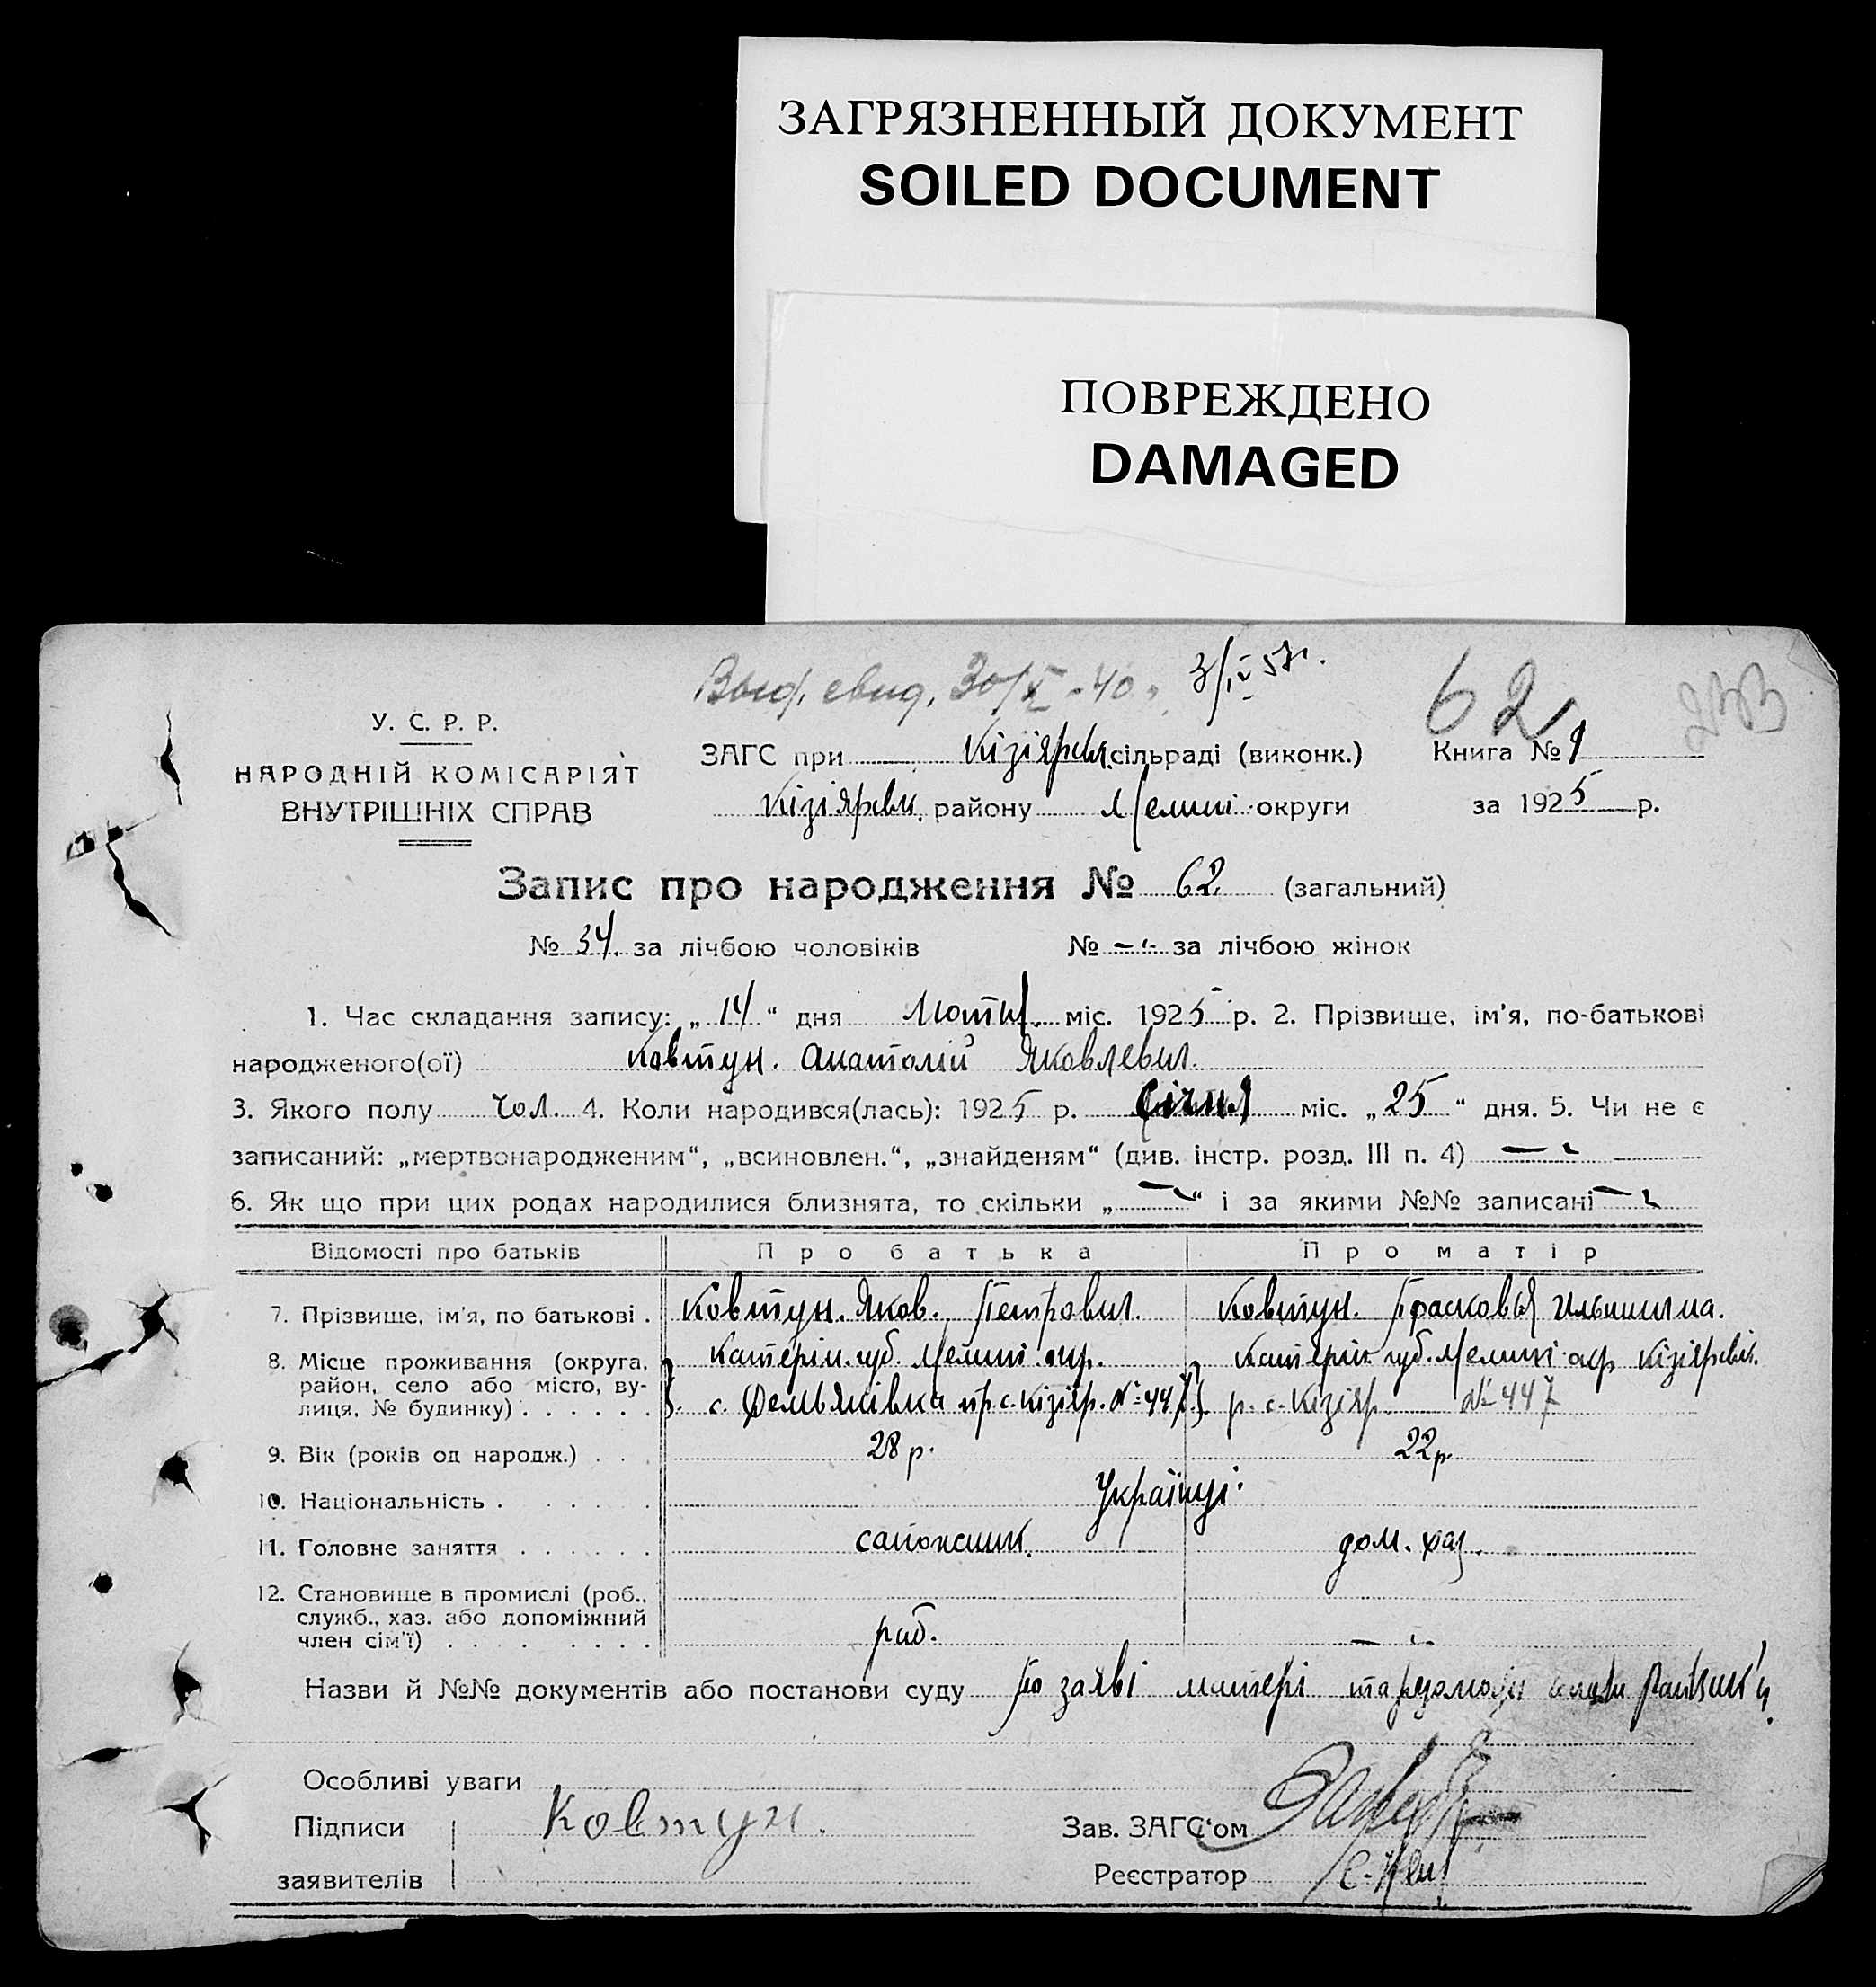 ЗАГРЯЗНЕННЫЙ ДОКУМЕНТ
SOILED DOCUMENT
ПОВРЕЖДЕНО
DAMAGED
Выд. свид. 30/X-40. 3/IV 57г.
62
У. С. Р. Р.
НАРОДНІЙ КОМІСАРІЯТ
ВНУТРІШНІХ СПРАВ
ЗАГС при Кізіярськ. сільраді (виконк.) Книга № 1
Кізіярськ. району Меліт. округи за 1925 р.
Запис про народження № 62 (загальний)
№ 34 за лічбою чоловіків № — за лічбою жінок
1. Час складання запису: „14“ дня Лютня міс. 1925 р. 2. Прізвище, ім'я, по-батькові
народженого(ої) Ковтун. Анатолій Яковлевич.
3. Якого полу чол. 4. Коли народився(лась): 1925 р. Січня міс. „25“ дня. 5. Чи не є
записаний: „мертвонародженим“, „всиновлен.“, „знайденям“ (див. інстр. розд. III п. 4) —
6. Як що при цих родах народилися близнята, то скільки „—“ і за якими №№ записані —
Відомості про батьків Про батька Про матір
7. Прізвище, ім'я, по батькові . Ковтун. Яков. Петрович. Ковтун. Прасковья Ильинична.
8. Місце проживання (округа, район, село або місто, вулиця, № будинку) . . . . . . Катерін. губ. Меліт. окр. Катерін. губ. Меліт. окр. Кізіярськ.
с. Демьянівка пр. с. Кізіяр. № 447. р. с. Кізіяр. № 447
9. Вік (років од народж.) . . . 28 р. 22 р.
10. Національність . . . . . . Українці.
11. Головне заняття . . . . . . сапожник. дом. хаз.
12. Становище в промислі (роб., служб., хаз. або допоміжний член сім'ї) . . . . . . . . раб. —
Назви й №№ документів або постанови суду по заяві матері та
Особливі уваги
Підписи Ковтун. Зав. ЗАГС'ом
заявителів Реєстратор